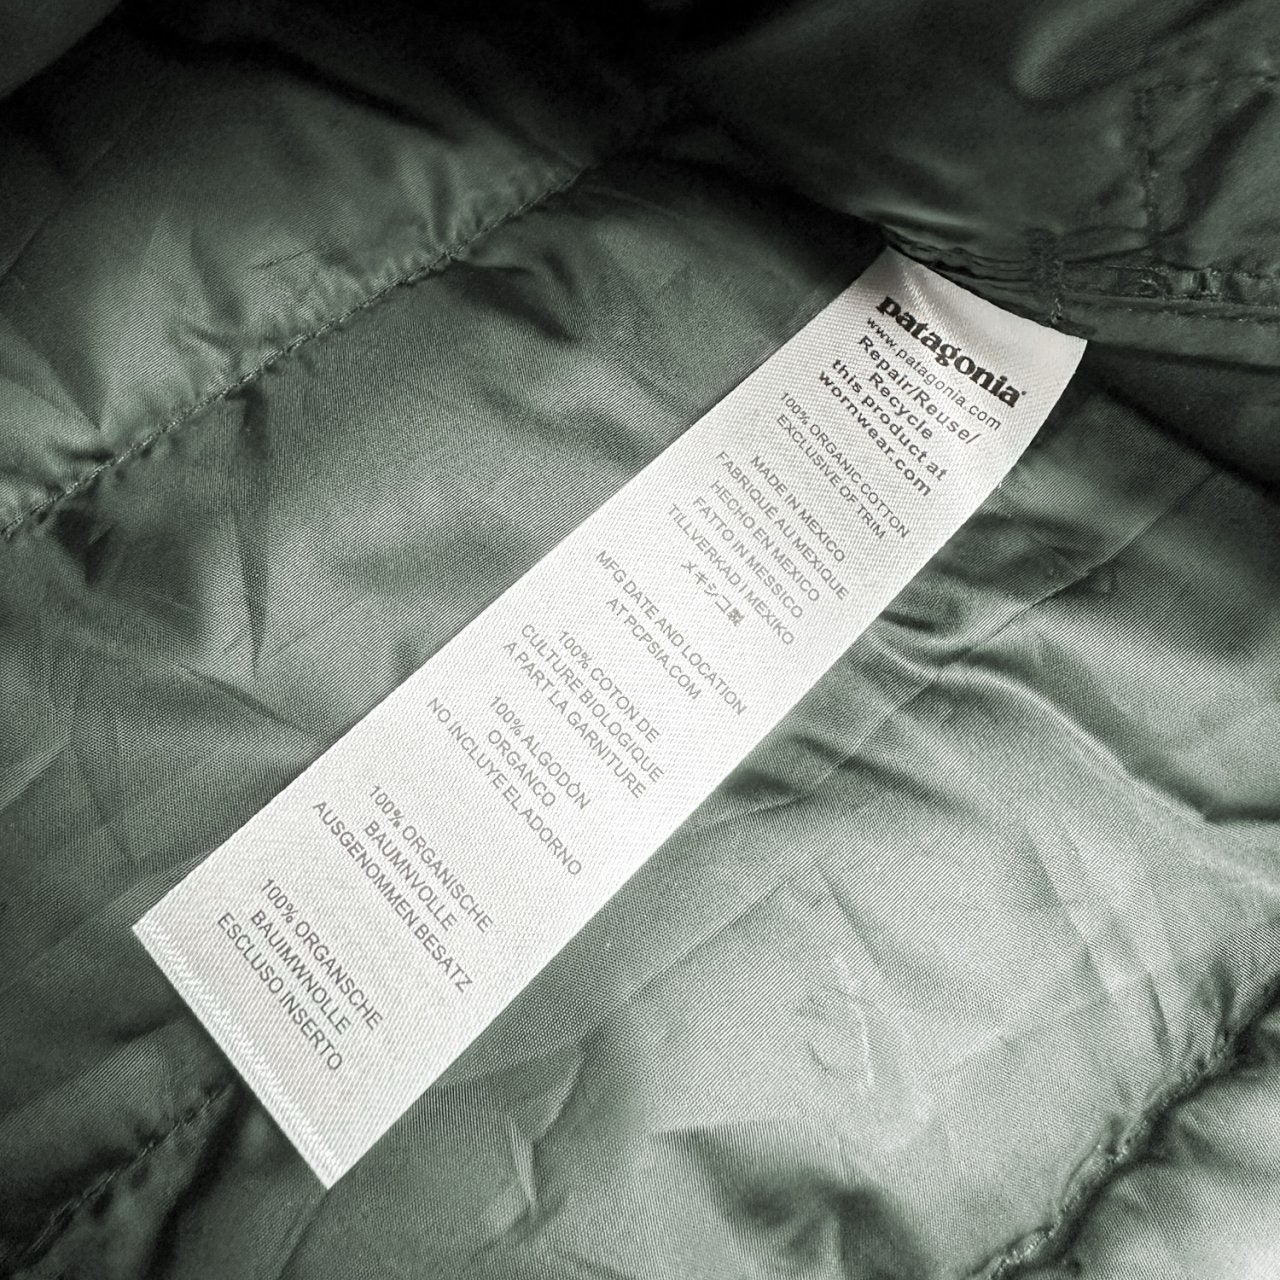 patagonia®
www.patagonia.com
Repair/Reuse/
Recycle
this product at
wornwear.com
100% ORGANIC COTTON
EXCLUSIVE OF TRIM
MADE IN MEXICO
FABRIQUÉ AU MEXIQUE
HECHO EN MEXICO
FATTO IN MESSICO
TILLVERKAD I MEXIKO
メキシコ製
MFG DATE AND LOCATION
AT PCPSIA.COM
100% COTON DE
CULTURE BIOLOGIQUE
A PART LA GARNITURE
100% ALGODÓN
ORGANCO
NO INCLUYE EL ADORNO
100% ORGANISCHE
BAUMNVOLLE
AUSGENOMMEN BESATZ
100% ORGANSCHE
BAUIMWNOLLE
ESCLUSO INSERTO